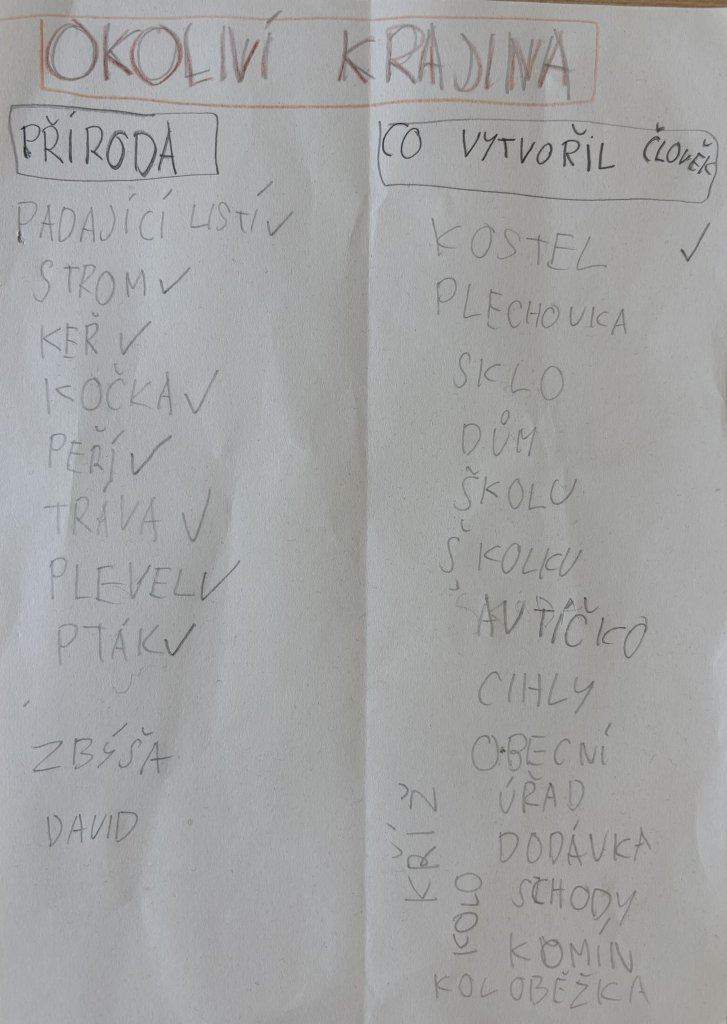 OKOLIVÍ KRAJINA
PŘÍRODA
PADAJÍCÍ LISTÍ ✓
STROM ✓
KEŘ ✓
KOČKA ✓
PEŘÍ ✓
TRÁVA ✓
PLEVEL ✓
PTÁK ✓
ZBÝŠA
DAVID
CO VYTVOŘIL ČLOVĚK
KOSTEL ✓
PLECHOVKA
SKLO
DŮM
ŠKOLU
ŠKOLKU
AUTÍČKO
CIHLY
OBECNÍ
ÚŘAD
DODÁVKA
SCHODY
KOMÍN
KOLOBĚŽKA
KŘÍŽ
KOLO